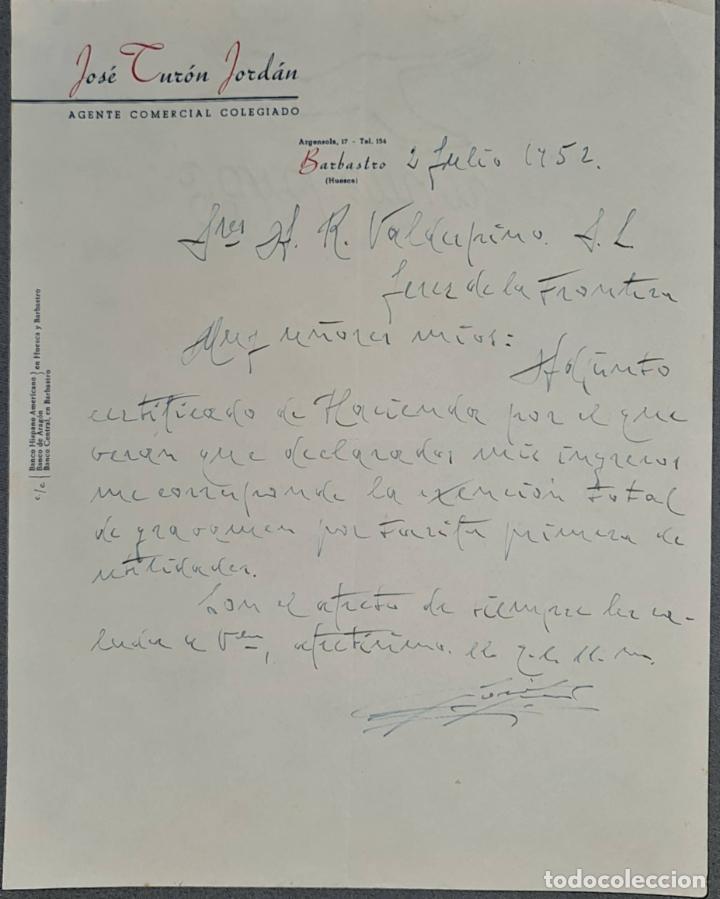 José Turón Jordán
AGENTE COMERCIAL COLEGIADO
Argensola, 17 - Tel. 154
Barbastro 2 Julio 1952.
(Huesca)
Sres A. R. Valdespino. S. L
Jerez de la Frontera
Muy señores mios:
Adjunto
certificado de Hacienda por el que
verán que declarados mis ingresos
me corresponde la exención total
de gravamen por tarifa primera de
utilidades.
Con el afecto de siempre les sa-
luda a Vds, afectísimo.
c/c. Banco Hispano Americano } en Huesca y Barbastro
Banco de Aragón
Banco Central, en Barbastro
todocoleccion